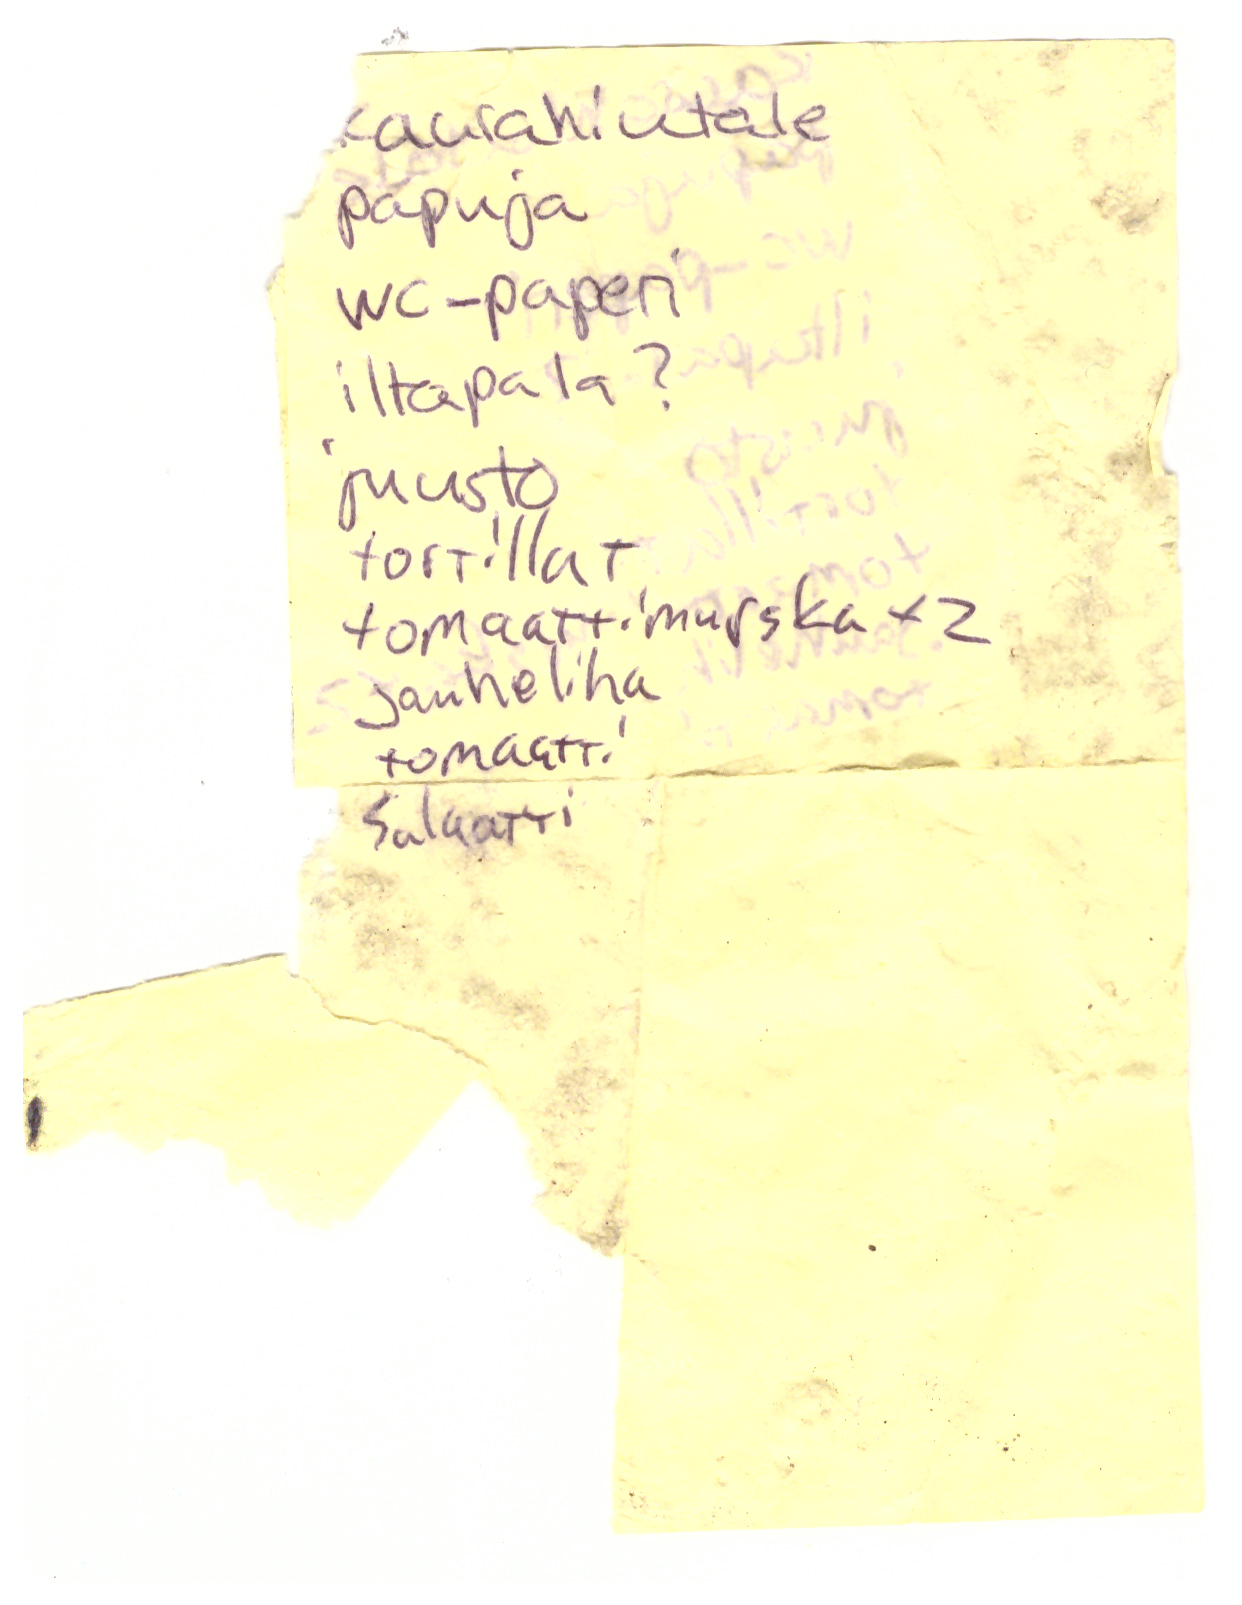 kaurahiutale
papuja
wc-paperi
iltapala?
juusto
tortillat
tomaattimurska x2
jauheliha
tomaatti
Salaatti